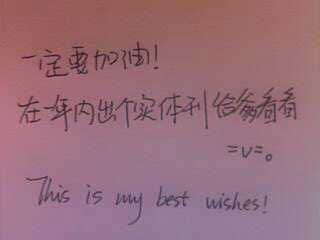 一定要加油!
在一年内出个实体刊给爹看看
=v=。
This is my best wishes!